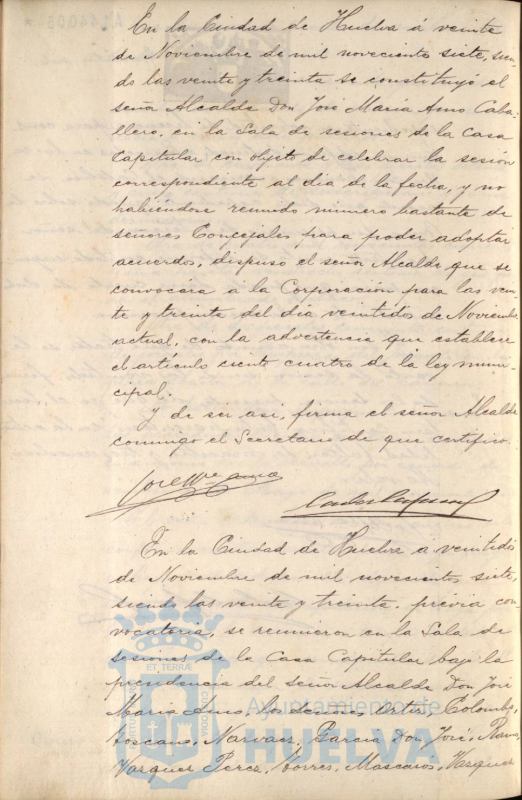 En la Ciudad de Huelva á veinte
de Noviembre de mil novecientos siete, sien-
do las veinte y treinta se constituyó el
señor Alcalde Don José María Amo Caba-
llero, en la Sala de sesiones de la Casa
Capitular con objeto de celebrar la sesión
correspondiente al dia de la fecha, y no
habiéndose reunido número bastante de
señores Concejales para poder adoptar
acuerdos, dispuso el señor Alcalde que se
convocara a la Corporación para las vein-
te y treinta del dia veintidos de Noviembre
actual, con la advertencia que establece
el artículo ciento cuatro de la ley muni-
cipal.
Y de ser asi, firma el señor Alcalde
conmigo el Secretario de que certifico.
José Mª Amo
En la Ciudad de Huelva a veintidos
de Noviembre de mil novecientos siete,
siendo las veinte y treinta, previa con-
vocatoria, se reunieron en la Sala de
sesiones de la Casa Capitular bajo la
presidencia del señor Alcalde Don José
María Amo, los señores Colombo,
Toscano, Narvaez, Garcia Don José,
Vazquez Perez, Torres, Mascaros, Vazquez
Ayuntamiento de
HUELVA